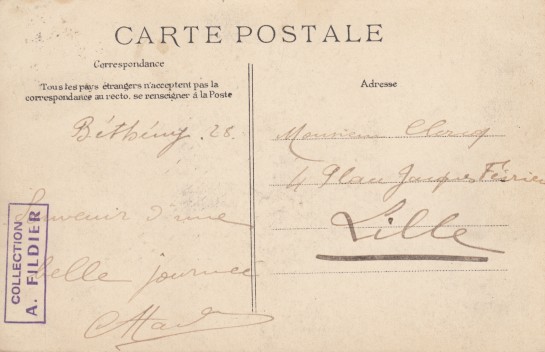 CARTE POSTALE
Correspondance
Tous les pays étrangers n'acceptent pas la
correspondance au recto, se renseigner à la Poste
Adresse
Béthény. 28.
Souvenir d'une
belle journée
Monsieur Clercq
4 Place Jacques Février
Lille
COLLECTION
A. FILDIER